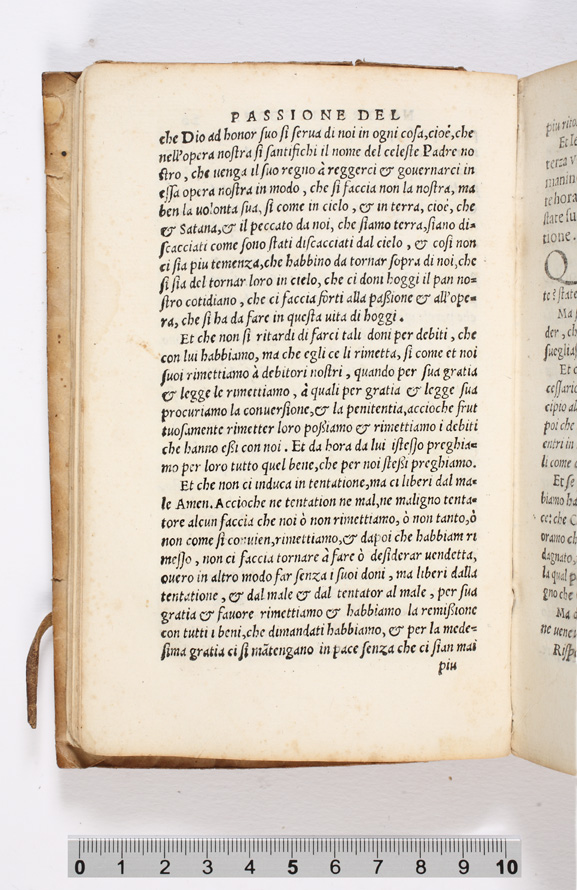 PASSIONE DEL
che Dio ad honor ſuo ſi ſerua di noi in ogni coſa,cioè,che
nell'opera noſtra ſi ſantifichi il nome del celeſte Padre no
ſtro, che uenga il ſuo regno à reggerci & gouernarci in
eſſa opera noſtra in modo, che ſi faccia non la noſtra, ma
ben la uolonta ſua, ſi come in cielo, & in terra, cioè, che
& Satana,& il peccato da noi, che ſiamo terra,ſiano di=
ſcacciati come ſono ſtati diſcacciati dal cielo, & coſi non
ci ſia piu temenza,che habbino da tornar ſopra di noi,che
ſi ſia del tornar loro in cielo, che ci doni hoggi il pan no=
ſtro cotidiano, che ci faccia forti alla paßione & all'ope=
ra, che ſi ha da fare in queſta uita di hoggi.
Et che non ſi ritardi di farci tali doni per debiti, che
con lui habbiamo, ma che egli ce li rimetta, ſi come et noi
ſuoi rimettiamo à debitori noſtri, quando per ſua gratia
& legge le rimettiamo, à quali per gratia & legge ſua
procuriamo la conuerſione,& la penitentia,accioche frut
tuoſamente rimetter loro poßiamo & rimettiamo i debiti
che hanno eßi con noi. Et da hora da lui iſteſſo preghia=
mo per loro tutto quel bene,che per noi ſteßi preghiamo.
Et che non ci induca in tentatione,ma ci liberi dal ma=
le Amen. Accioche ne tentation ne mal,ne maligno tenta=
tore alcun faccia che noi ò non rimettiamo, ò non tanto,ò
non come ſi conuien,rimettiamo,& dapoi che habbiam ri
meſſo, non ci faccia tornare à fare ò deſiderar uendetta,
ouero in altro modo far ſenza i ſuoi doni, ma liberi dalla
tentatione, & dal male & dal tentator al male, per ſua
gratia & fauore rimettiamo & habbiamo la remißione
con tutti i beni,che dimandati habbiamo, & per la mede=
ſima gratia ci ſi mātengano in pace ſenza che ci ſian mai
piu
piu rito
Et le
terza v
manin
te hora
ſtate ſu
tione.
Q
te? ſtate
Ma
der, ch
ſuegliaſ
Et c
ceſſario
cipio al
poi che
entri in
li come
Et ſe
biamo ha
ce: che C
oramo ch
dagnato,
la qual p
gno che
Ma
ne uenei
Riſp
0 1 2 3 4 5 6 7 8 9 10